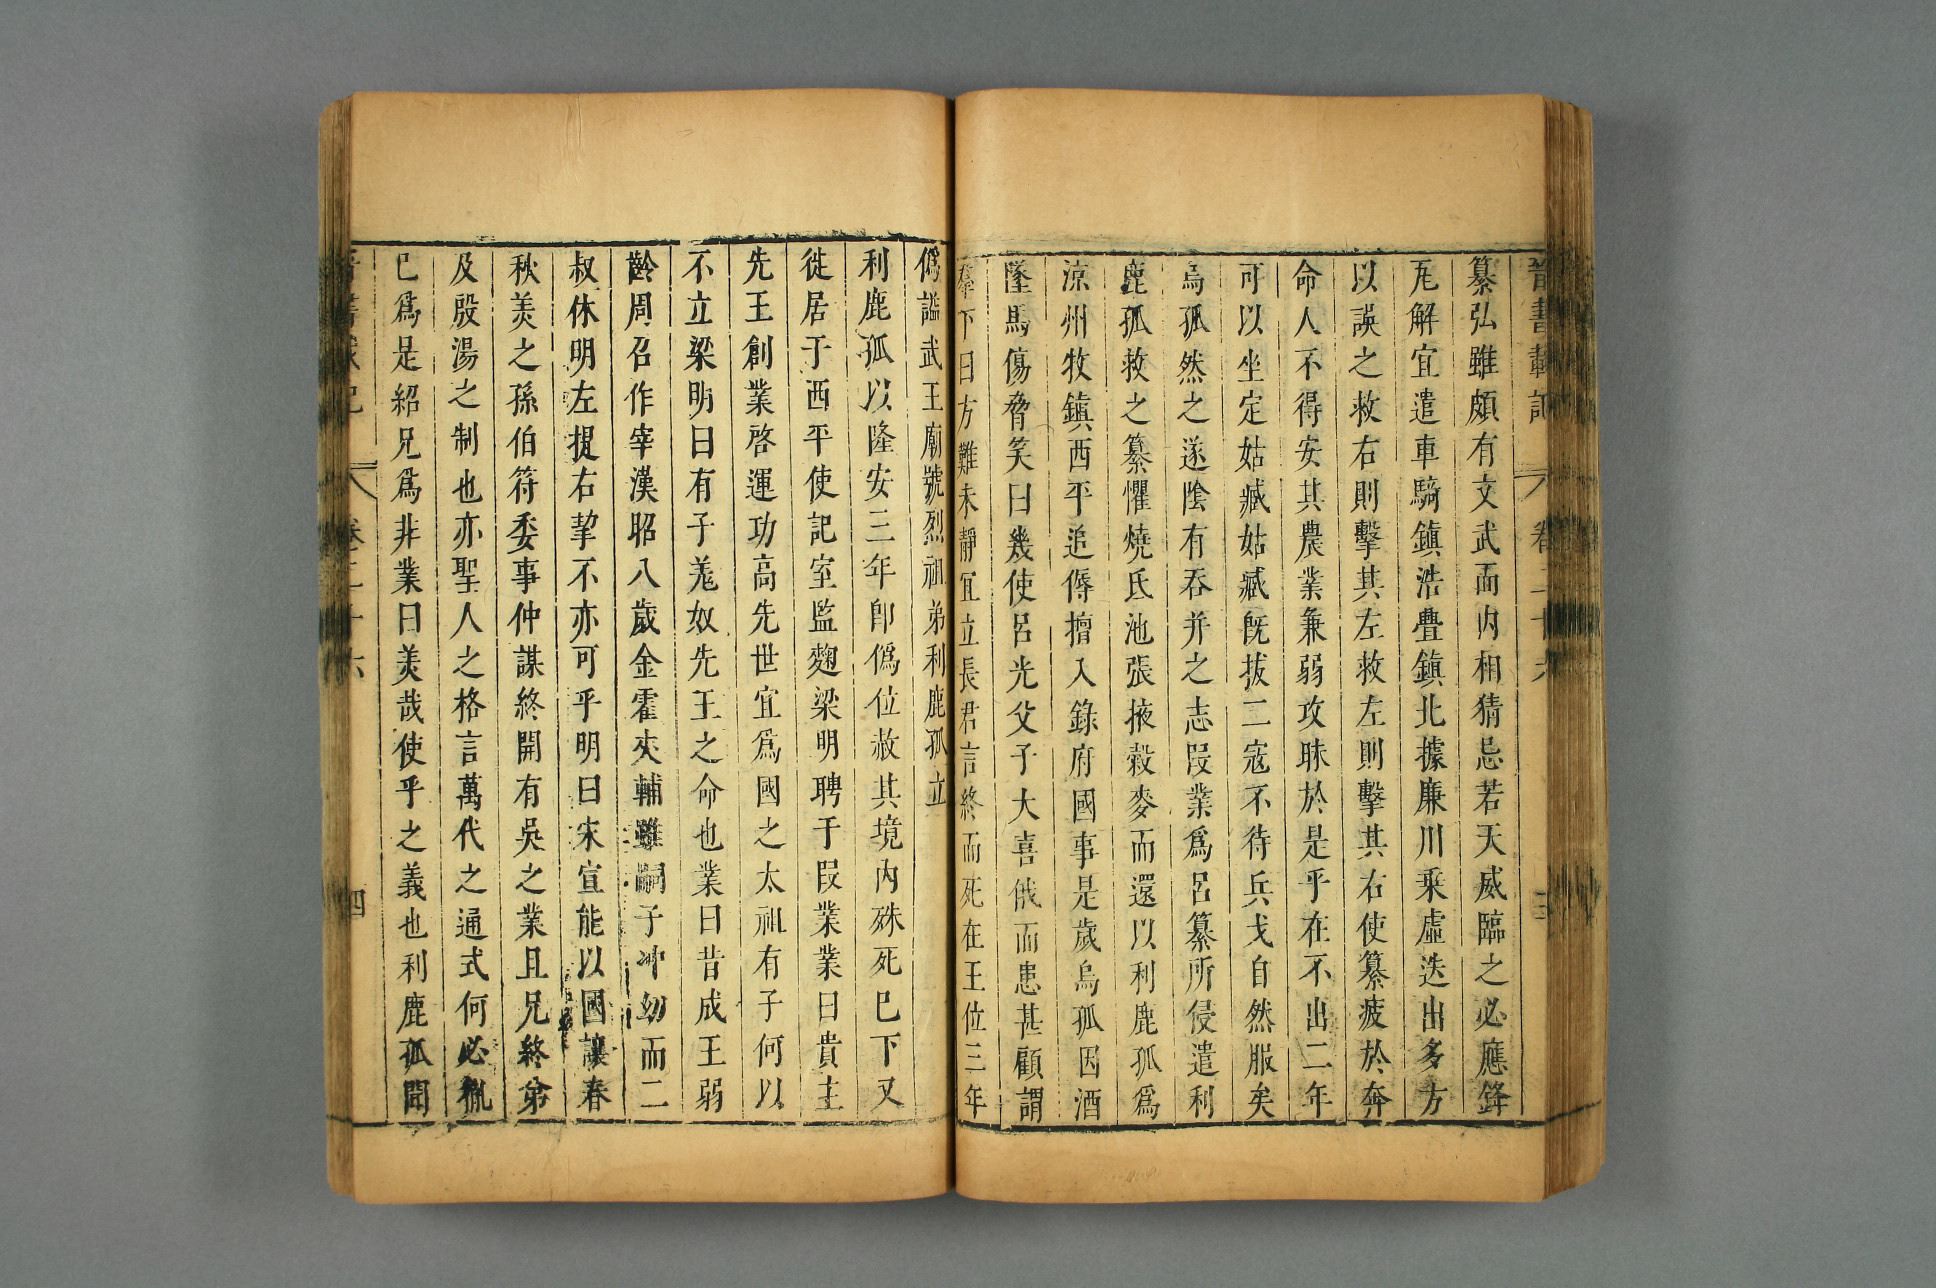 晉書載記 卷二十六 三
纂弘雖頗有文武而内相猜忌若天威臨之必應鋒
瓦解宜遣車騎鎮浩亹鎮北據廉川乘虛迭出多方
以誤之救右則擊其左救左則擊其右使纂疲於奔
命人不得安其農業兼弱攻昧於是乎在不出二年
可以坐定姑臧姑臧既拔二寇不待兵戈自然服矣
烏孤然之遂陰有吞并之志段業爲呂纂所侵遣利
鹿孤救之纂懼燒氐池張掖穀麥而還以利鹿孤爲
涼州牧鎮西平追傉檀入錄府國事是歲烏孤因酒
墜馬傷脅笑曰幾使呂光父子大喜俄而患甚顧謂
羣下曰方難未靜宜立長君言終而死在王位三年
僞謚武王廟號烈祖弟利鹿孤立
利鹿孤以隆安三年卽僞位赦其境内殊死已下又
徙居于西平使記室監麴梁明聘于段業業曰貴主
先王創業啓運功高先世宜爲國之太祖有子何以
不立梁明曰有子羌奴先王之命也業曰昔成王弱
齡周召作宰漢昭八歲金霍夾輔雖嗣子冲幼而二
叔休明左提右挈不亦可乎明曰宋宣能以國讓春
秋美之孫伯符委事仲謀終開有吳之業且兄終弟
及殷湯之制也亦聖人之格言萬代之通式何必胤
已爲是紹兄爲非業曰美哉使乎之義也利鹿孤聞
晉書載記 卷二十六 四